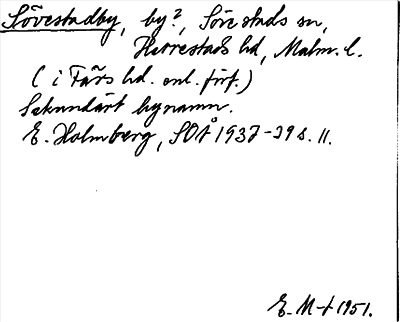 Sövestadby, by?, Sövestads sn,
Herrestads hd, Malm. l.
(i Färs hd. enl. förf.)
Sekundärt bynamn.
E. Holmberg, SOÅ 1937-39 s. 11.
E. M-t 1951.